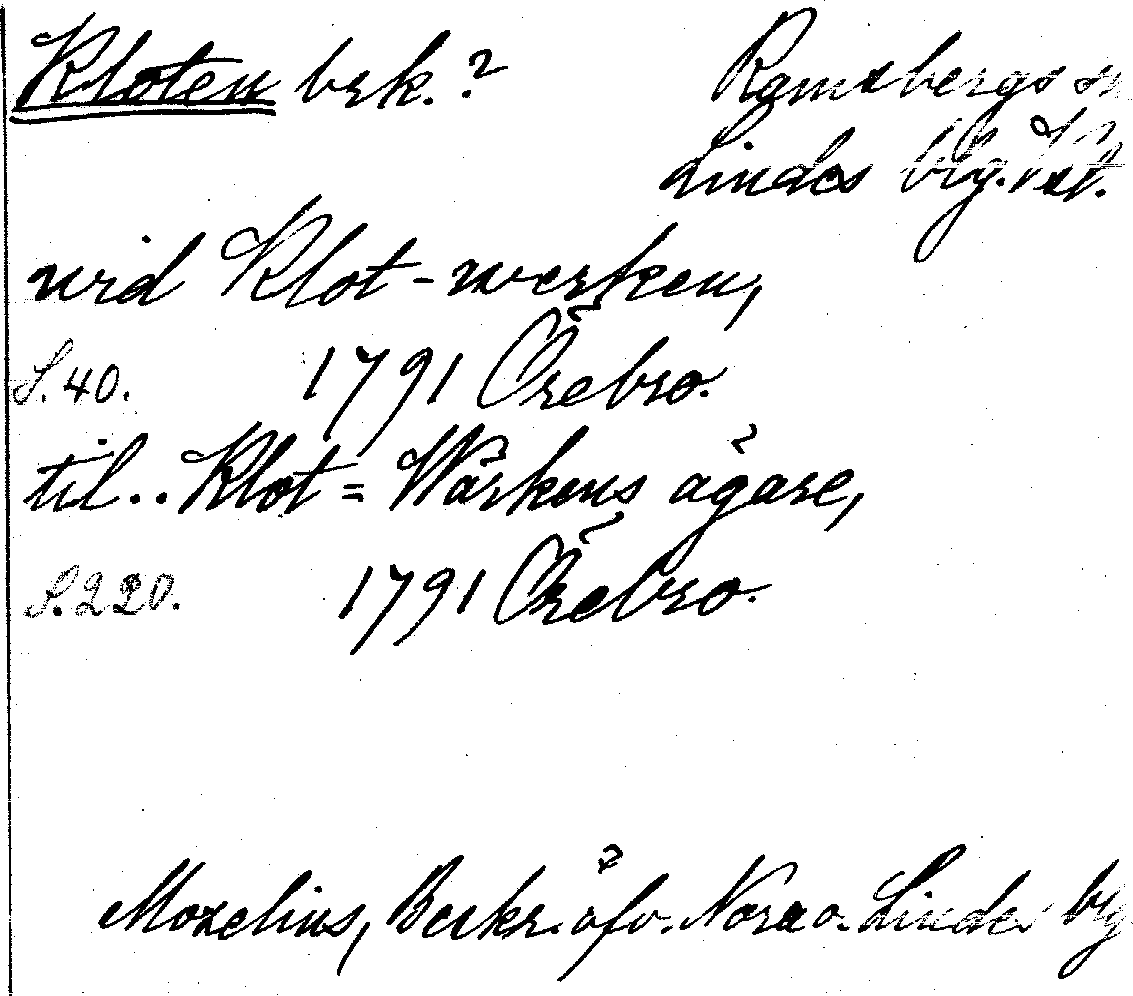 Kloten brk.? Ramsbergs sn
Lindes blg.
wid Klot-werken,
S. 40. 1791 Örebro.
til.. Klot= Wärkens ägare,
S. 220. 1791 Örebro.
Morelius, Beskr. öfv. Nora o. Lindes blg